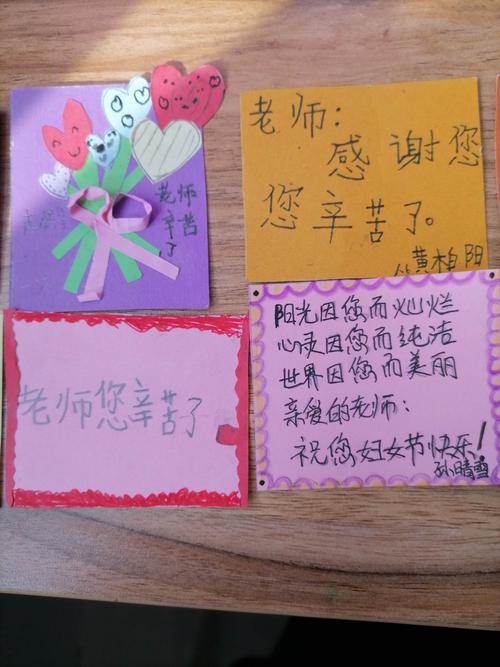 老师
辛苦
了
老师：
感谢您
您辛苦了。
黄柏阳
老师您辛苦了
阳光因您而灿烂
心灵因您而纯洁
世界因您而美丽
亲爱的老师：
祝您妇女节快乐！
孙晴雪